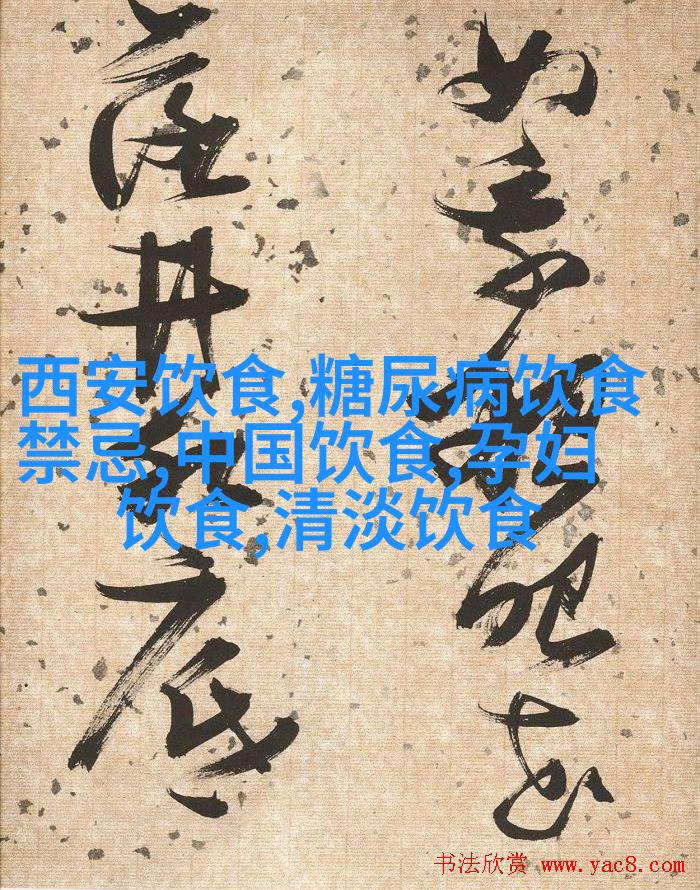 似乘船眼花
落井水底
西安饮食,糖尿病饮食
禁忌,中国饮食,孕妇
饮食,清淡饮食
书法欣赏 www.yac8.com